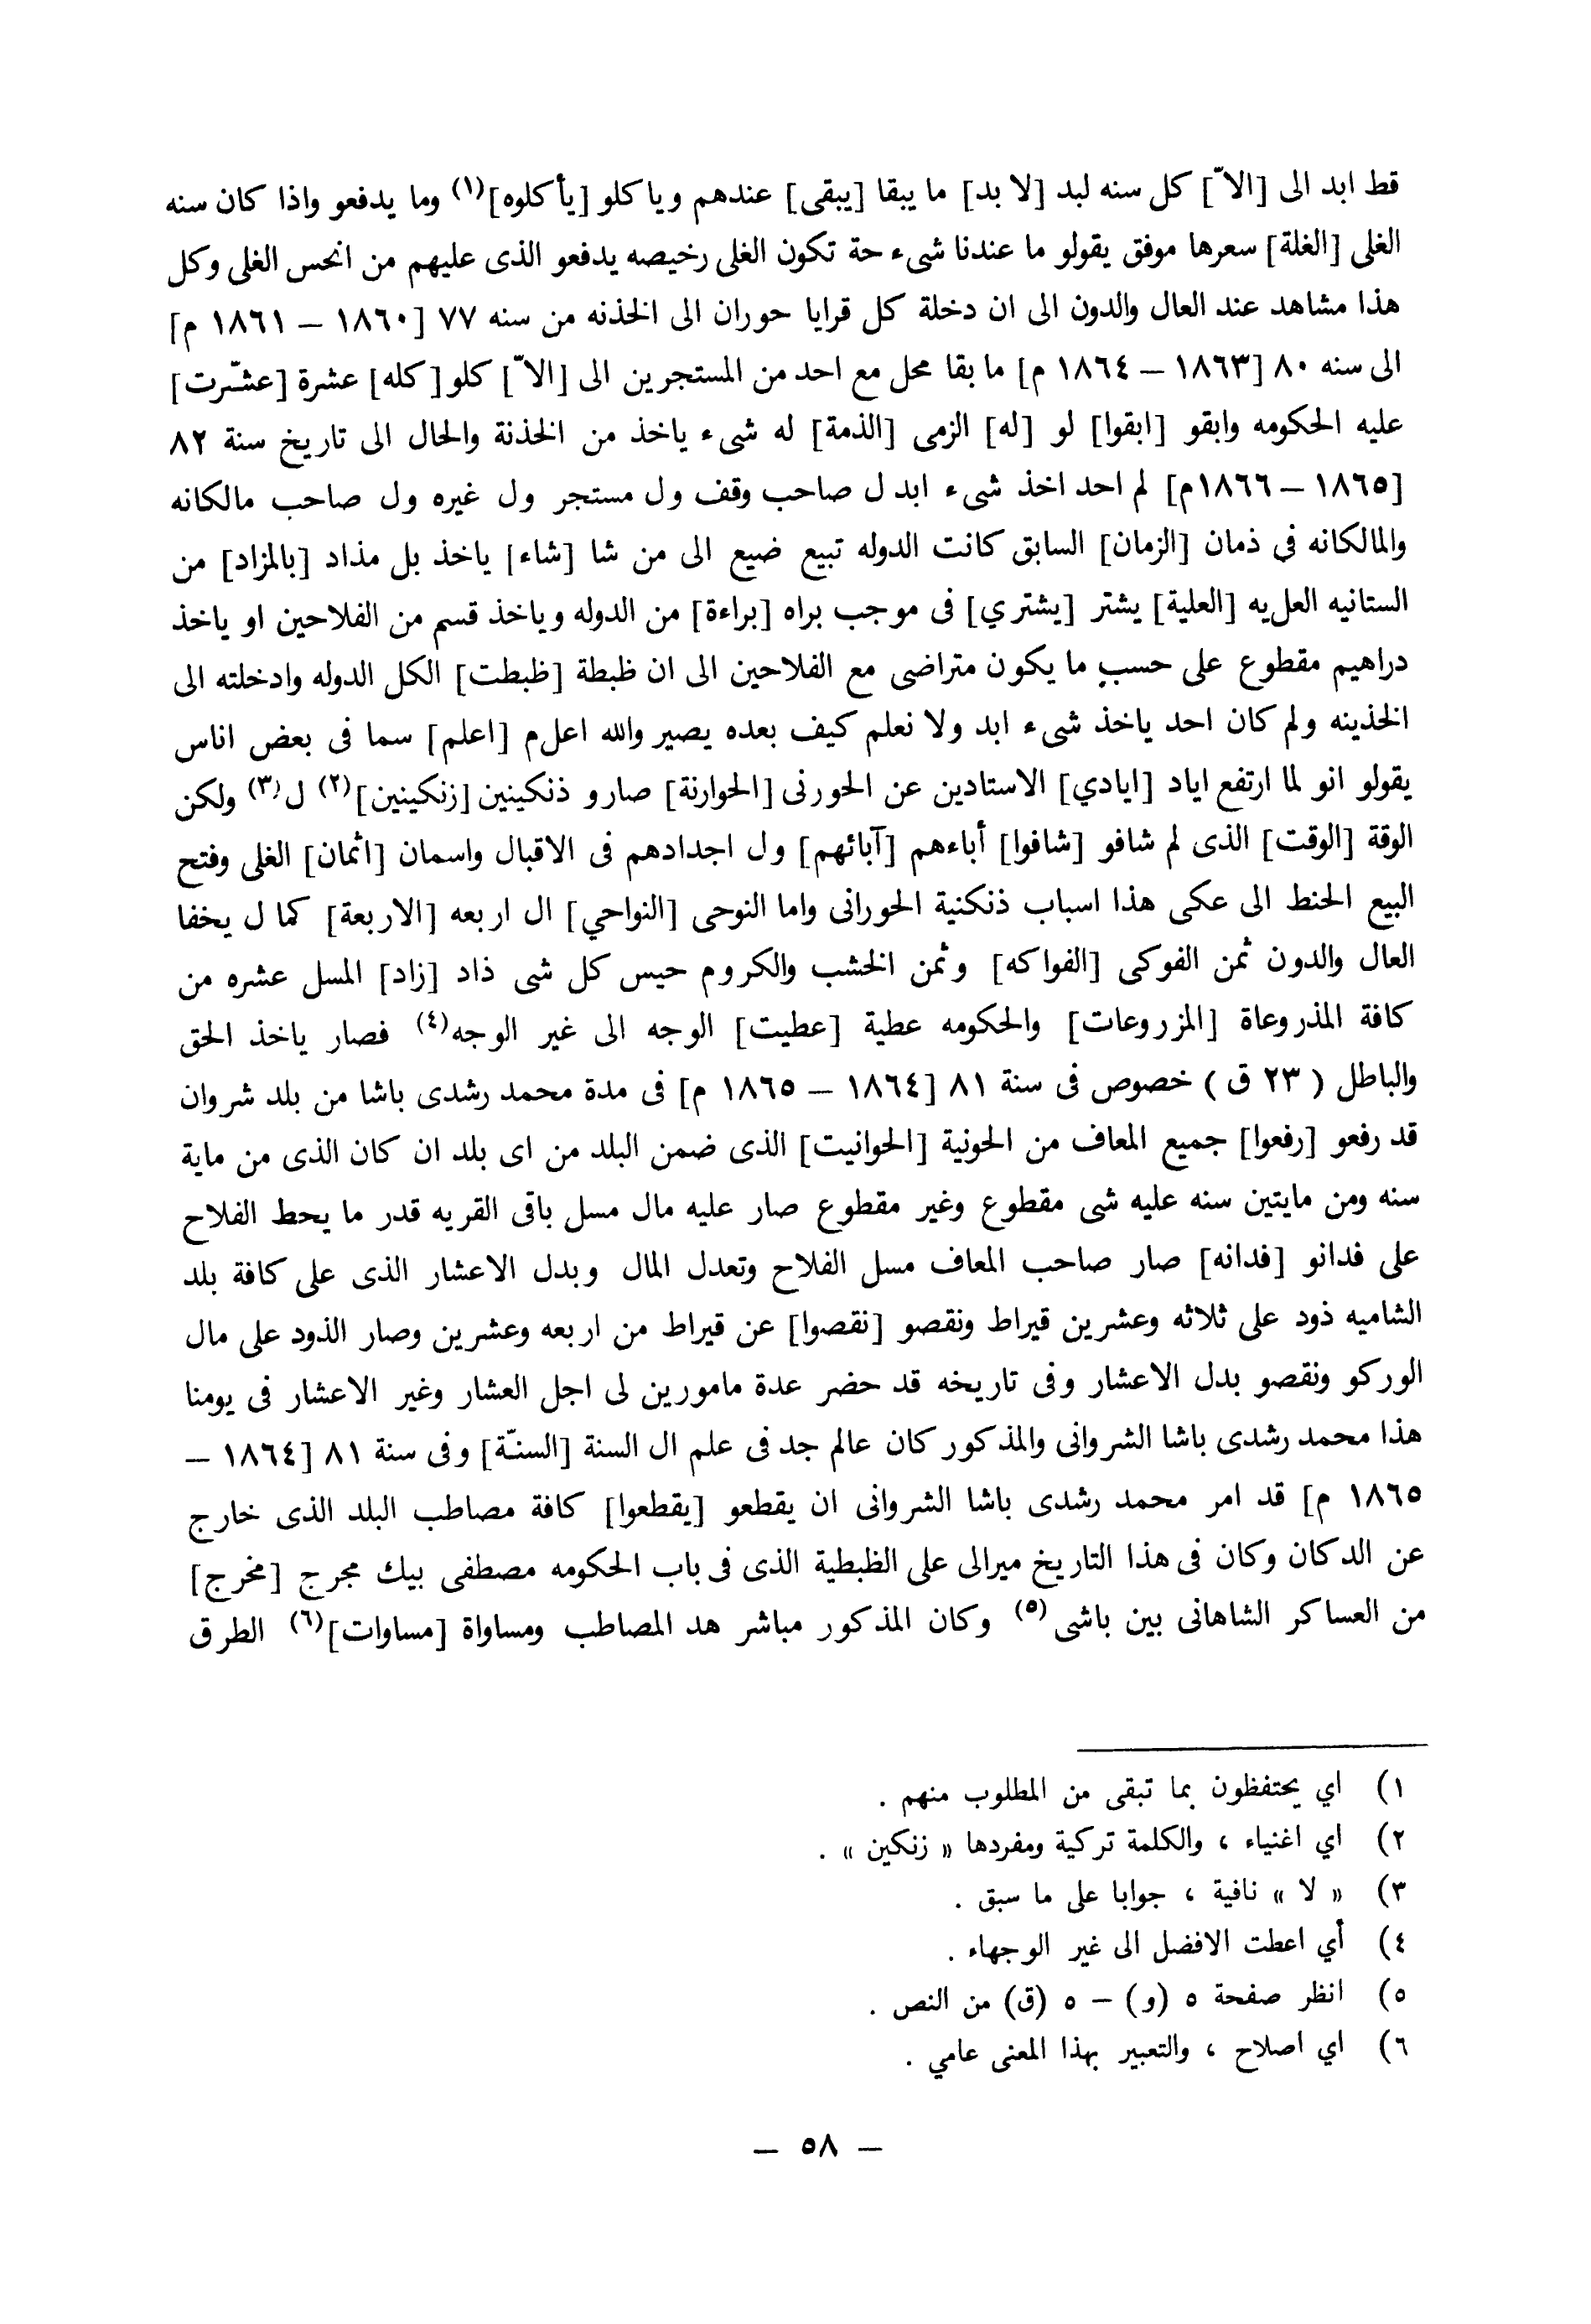 قط ابد الى [الاّ] كل سنه لبد [لا بد] ما يبقا [يبقى] عندهم وياكلو [يأكلوه](١) وما يدفعو واذا كان سنه
الغلى [الغلة] سعرها موفق يقولو ما عندنا شىء حة تكون الغلى رخيصه يدفعو الذى عليهم من انحس الغلى وكل
هذا مشاهد عند العال والدون الى ان دخلة كل قرايا حوران الى الخذنه من سنه ٧٧ [١٨٦٠ – ١٨٦١ م]
الى سنه ٨٠ [١٨٦٣ – ١٨٦٤ م] ما بقا محل مع احد من المستجرين الى [الاّ] كلو [كله] عشرة [عشّرت]
عليه الحكومه وابقو [ابقوا] لو [له] الزمى [الذمة] له شىء ياخذ من الخذنة والحال الى تاريخ سنة ٨٢
[١٨٦٥ – ١٨٦٦م] لم احد اخذ شىء ابد ل صاحب وقف ول مستجر ول غيره ول صاحب مالكانه
والمالكانه في ذمان [الزمان] السابق كانت الدوله تبيع ضيع الى من شا [شاء] ياخذ بل مذاد [بالمزاد] من
الستانيه العل‍يه [العلية] يشتر [يشتري] فى موجب براه [براءة] من الدوله وياخذ قسم من الفلاحين او ياخذ
دراهيم مقطوع على حسب ما يكون متراضى مع الفلاحين الى ان ظبطة [ظبطت] الكل الدوله وادخلته الى
الخذينه ولم كان احد ياخذ شىء ابد ولا نعلم كيف بعده يصير والله اعل‍م [اعلم] سما فى بعض اناس
يقولو انو لما ارتفع اياد [ايادي] الاستادين عن الحورنى [الحوارنة] صارو ذنكينين [زنكينين](٢) ل(٣) ولكن
الوقة [الوقت] الذى لم شافو [شافوا] أباءهم [آبائهم] ول اجدادهم فى الاقبال واسمان [اثمان] الغلى وفتح
البيع الحنط الى عكى هذا اسباب ذنكنية الحورانى واما النوحى [النواحي] ال اربعه [الاربعة] كما ل يخفا
العال والدون ثمن الفوكى [الفواكه] وثمن الخشب والكروم حيس كل شى ذاد [زاد] المسل عشره من
كافة المذروعاة [المزروعات] والحكومه عطية [عطيت] الوجه الى غير الوجه(٤) فصار ياخذ الحق
والباطل (٢٣ ق) خصوص فى سنة ٨١ [١٨٦٤ – ١٨٦٥ م] فى مدة محمد رشدى باشا من بلد شروان
قد رفعو [رفعوا] جميع المعاف من الحونية [الحوانيت] الذى ضمن البلد من اى بلد ان كان الذى من ماية
سنه ومن مايتين سنه عليه شى مقطوع وغير مقطوع صار عليه مال مسل باقى القريه قدر ما يحط الفلاح
على فدانو [فدانه] صار صاحب المعاف مسل الفلاح وتعدل المال وبدل الاعشار الذى على كافة بلد
الشاميه ذود على ثلاثه وعشرين قيراط ونقصو [نقصوا] عن قيراط من اربعه وعشرين وصار الذود على مال
الوركو ونقصو بدل الاعشار وفى تاريخه قد حضر عدة مامورين لى اجل العشار وغير الاعشار فى يومنا
هذا محمد رشدى باشا الشروانى والمذكور كان عالم جد فى علم ال السنة [السنّة] وفى سنة ٨١ [١٨٦٤ –
١٨٦٥ م] قد امر محمد رشدى باشا الشروانى ان يقطعو [يقطعوا] كافة مصاطب البلد الذى خارج
عن الدكان وكان فى هذا التاريخ ميرالى على الظبطية الذى فى باب الحكومه مصطفى بيك مجرج [مخرج]
من العساكر الشاهانى بين باشى(٥) وكان المذكور مباشر هد المصاطب ومساواة [مساوات](٦) الطرق
١) اي يحتفظون بما تبقى من المطلوب منهم .
٢) اي اغنياء ، والكلمة تركية ومفردها « زنكين » .
٣) « لا » نافية ، جوابا على ما سبق .
٤) أي اعطت الافضل الى غير الوجهاء .
٥) انظر صفحة ٥ (و) – ٥ (ق) من النص .
٦) اي اصلاح ، والتعبير بهذا المعنى عامي .
– ٥٨ –